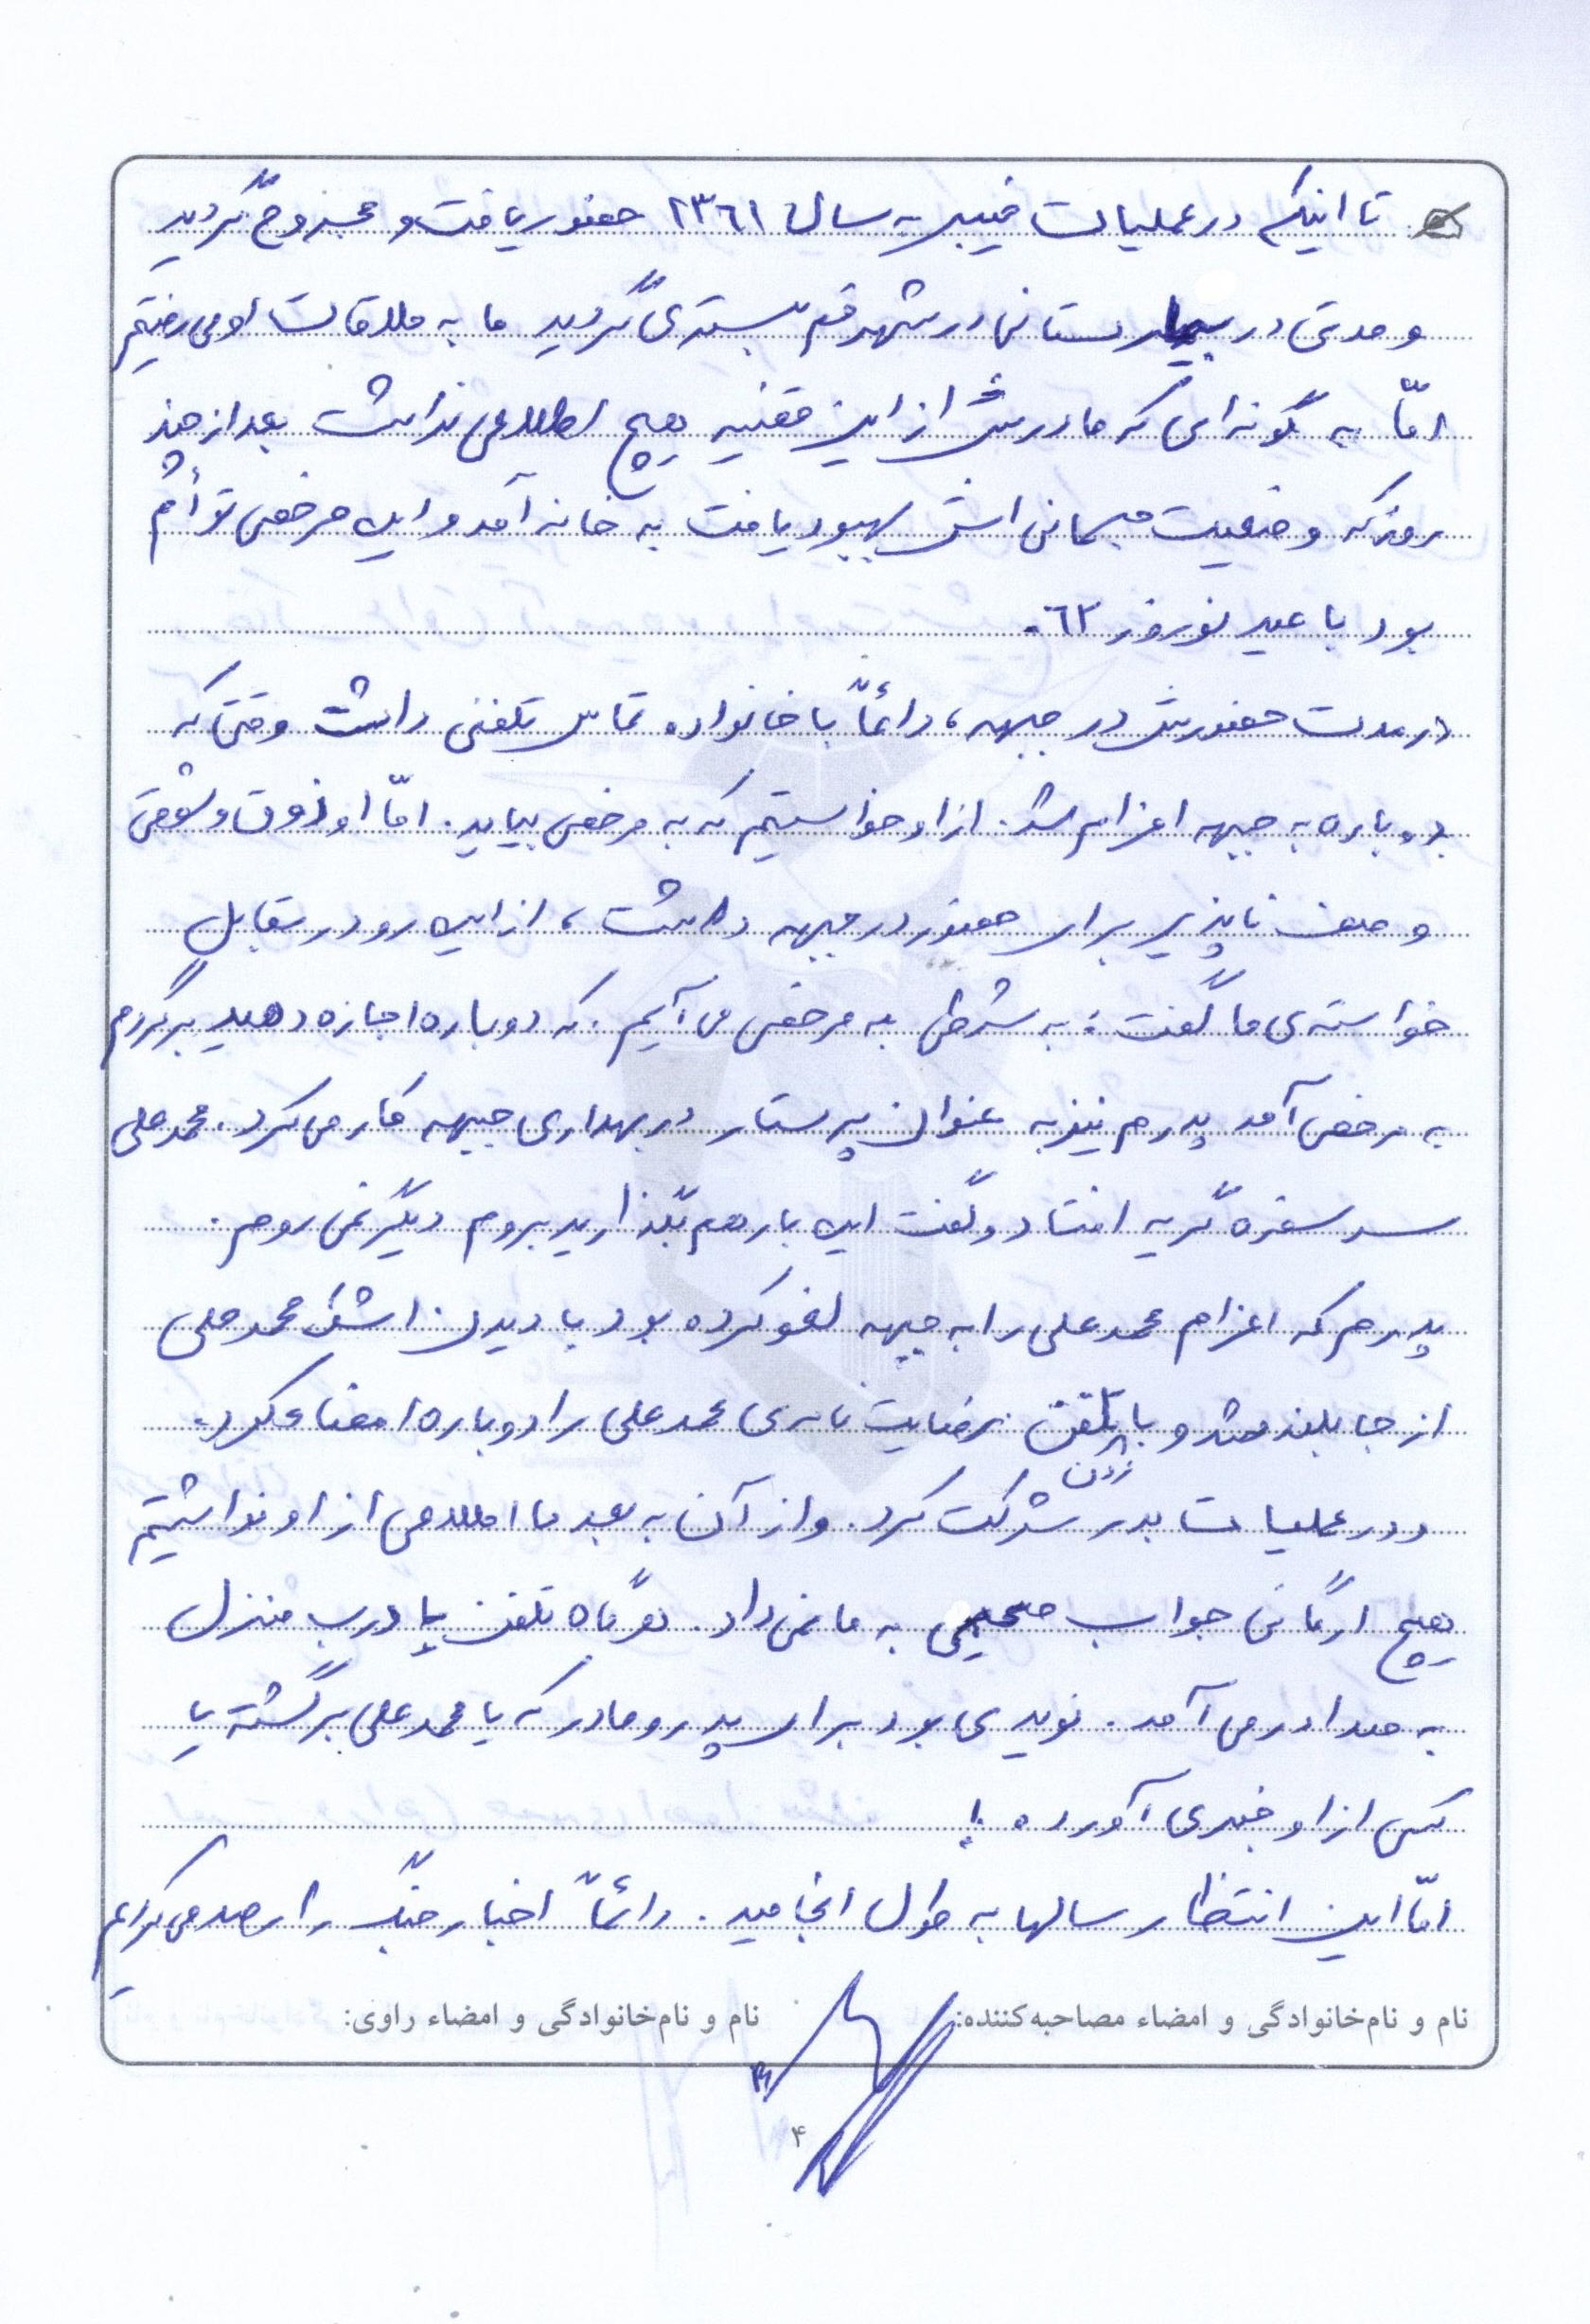 تا اینکه در عملیات خیبر به سال ۱۳٦۱ حضور یافت و مجروح گردید
و مدتی در بیمارستانی در شهر قم بستری گردید ما به ملاقات او می رفتیم
امّا به گونه ای که مادرش از این قضیه هیچ اطلاعی نداشت بعد از چند
روز که وضعیت جسمانی اش بهبود یافت به خانه آمد و این مرخصی توأم
بود با عید نوروز ٦۲.
در مدت حضورش در جبهه، دائماً با خانواده تماس تلفنی داشت وقتی که
دوباره به جبهه اعزام شد. از او خواستیم که به مرخصی بیاید. امّا او ذوق و شوقی
وصف ناپذیر برای حضور در جبهه داشت، از این رو در مقابل
خواسته ی ما گفت: به شرطی به مرخصی می آیم. که دوباره اجازه دهید برگردم
به مرخصی آمد پدرم نیز به عنوان پرستار در بهداری جبهه کار می کرد. محمدعلی
سر سفره گریه افتاد و گفت این بار هم بگذارید بروم دیگر نمی روم.
پدرم که اعزام محمدعلی را به جبهه لغو کرده بود با دیدن اشک محمدعلی
از جا بلند شد و با تلفن زدن رضایت نامه ی محمدعلی را دوباره امضاء کرد.
و در عملیات بدر شرکت کرد. و از آن به بعد ما اطلاعی از او نداشتیم
هیچ ارگانی جواب صحیحی به ما نمی داد. هرگاه تلفن یا درب منزل
به صدا در می آمد. نویدی بود برای پدر و مادر که یا محمدعلی برگشته یا
کسی از او خبری آورده!
امّا این انتظار سالها به طول انجامید. دائماً اخبار جنگ را رصد می کردیم
نام و نام‌خانوادگی و امضاء مصاحبه‌کننده: نام و نام‌خانوادگی و امضاء راوی:
۴